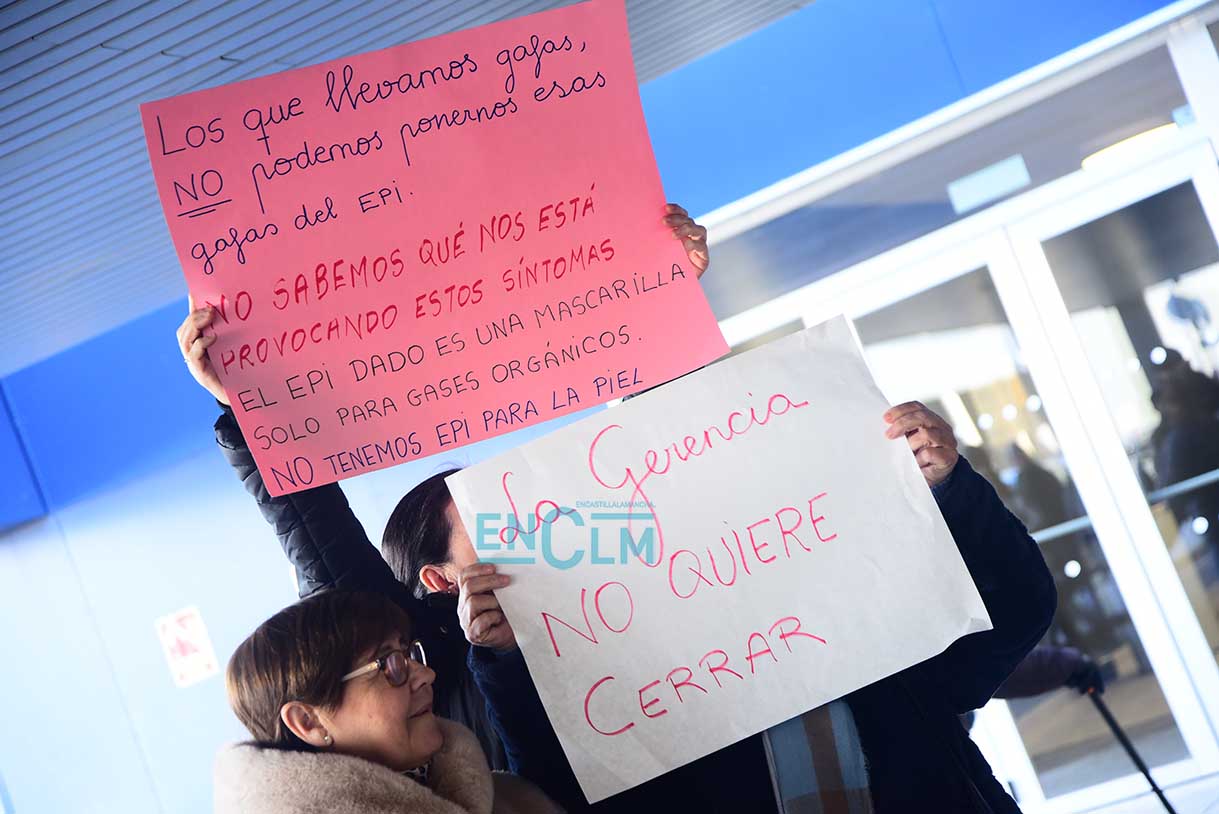 Los que llevamos gafas,
NO podemos ponernos esas
gafas del EPI.
NO SABEMOS QUÉ NOS ESTÁ
PROVOCANDO ESTOS SÍNTOMAS
EL EPI DADO ES UNA MASCARILLA
SOLO PARA GASES ORGÁNICOS.
NO TENEMOS EPI PARA LA PIEL
La Gerencia
NO QUIERE
CERRAR
ENCASTILLALAMANCHA
ENCLM